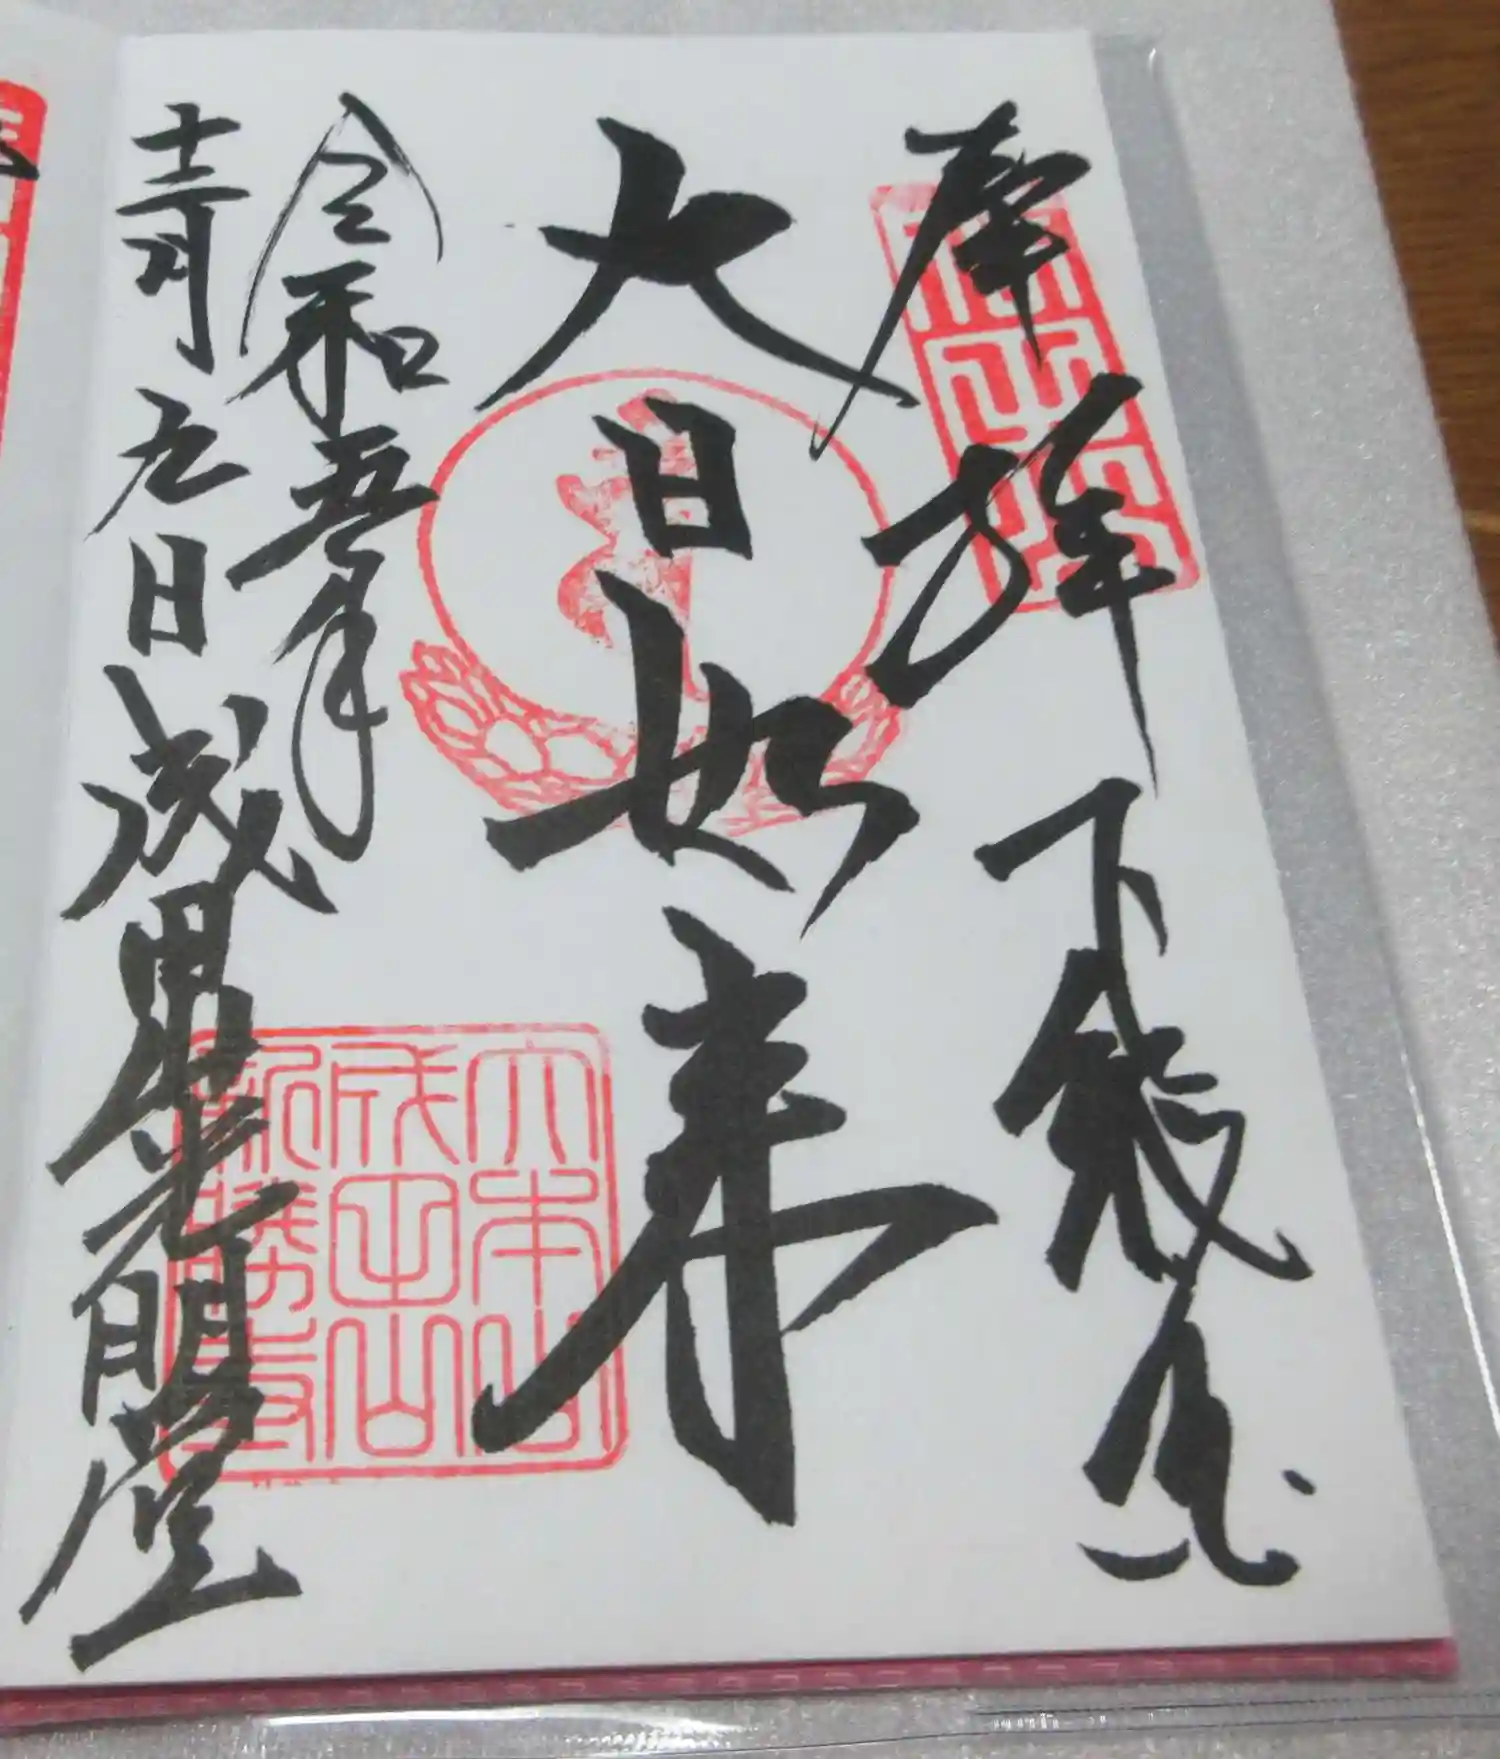 奉拝 下総国
大日如来
令和五年
十二月九日 成田山光明堂
大本山
成田山
新勝寺